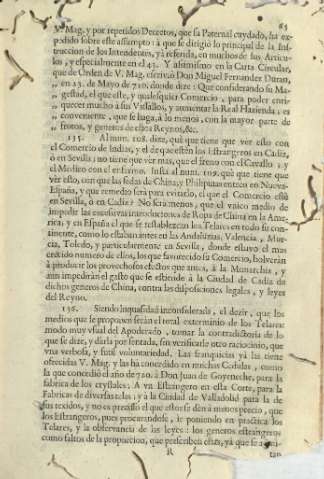 65
V. Mag. y por repetidos Decretos, que su Paternal cuydado, ha ex-
pedido sobre este assumpto: à que se dirigiò lo principal de la Ins-
truccion de los Intendentes, yà referida, en muchos de sus Articu-
los, y especialmente en el 43. Y assimismo en la Carta Circular,
que de Orden de V. Mag. escriviò Don Miguel Fernandez Duran,
en 23. de Mayo de 720. donde dize: Que considerando su Ma-
gestad, el que este, y qualesquier Comercio, para poder enri-
quecer mucho à sus Vassallos, y aumentar la Real Hazienda, es
conveniente, que se haga, à lo menos, con la mayor parte de
frutos, y generos de estos Reynos, &c.
135. Al num. 108. dize, què que tiene que ver esto con
el Comercio de Indias, y el de que estèn los Estrangeros en Cadiz,
ò en Sevilla; no tiene que ver mas, que el freno con el Cavallo, y
el Medico con el enfermo. Insta al num. 109. què que tiene que
vèr esto, con que las sedas de China, y Philipinas entren en Nueva-
España, y que remedio serà para evitarlo, el que el Comercio estè
en Sevilla, ò en Cadiz? No serà menos, que el vnico medio de
impedir las excessivas introducciones de Ropa de China en la Ame-
rica, y en España el que se restablezcan los Telares en todo su con-
tinente, como lo estaban antes en las Andaluzias, Valencia, Mur-
cia, Toledo, y particularmente en Sevilla, donde estuvo el mas
crecido numero de ellos, los que favorecido su Comercio, bolveràn
à producir los provechosos efectos que antes, à la Monarchia, y
aun impediràn el gasto que se estiende à la Ciudad de Cadiz de
dichos generos de China, contra las disposiciones legales, y leyes
del Reyno.
136. Siendo inquasidad inconsiderada, el dezir, que los
medios que se proponen seràn el total exterminio de los Telares:
modo muy vsual del Apoderado, tomar la contradictoria de lo
que se dize, y darla por sentada, sin verificarle otro raciocinio, que
vna verbosa, y futil voluntariedad. Las franquicias yà las tiene
ofrecidas V. Mag. y las ha concedido en muchas Cedulas, como
la que concediò el año de 720. à Don Juan de Goyeneche, para la
fabrica de los crystales; A vn Estrangero en esta Corte, para la
Fabricas de diversas telas; y à la Ciudad de Valladolid para la de
sus texidos, y no es preciso el que estos se dèn à menos precio, que
los Estrangeros, pues procurandose, ir poniendo en practica los
Telares, y la observancia de las leyes: los generos estrangeros
como faltos de la proporcion, que prescriben estas, yà que se
R
tan